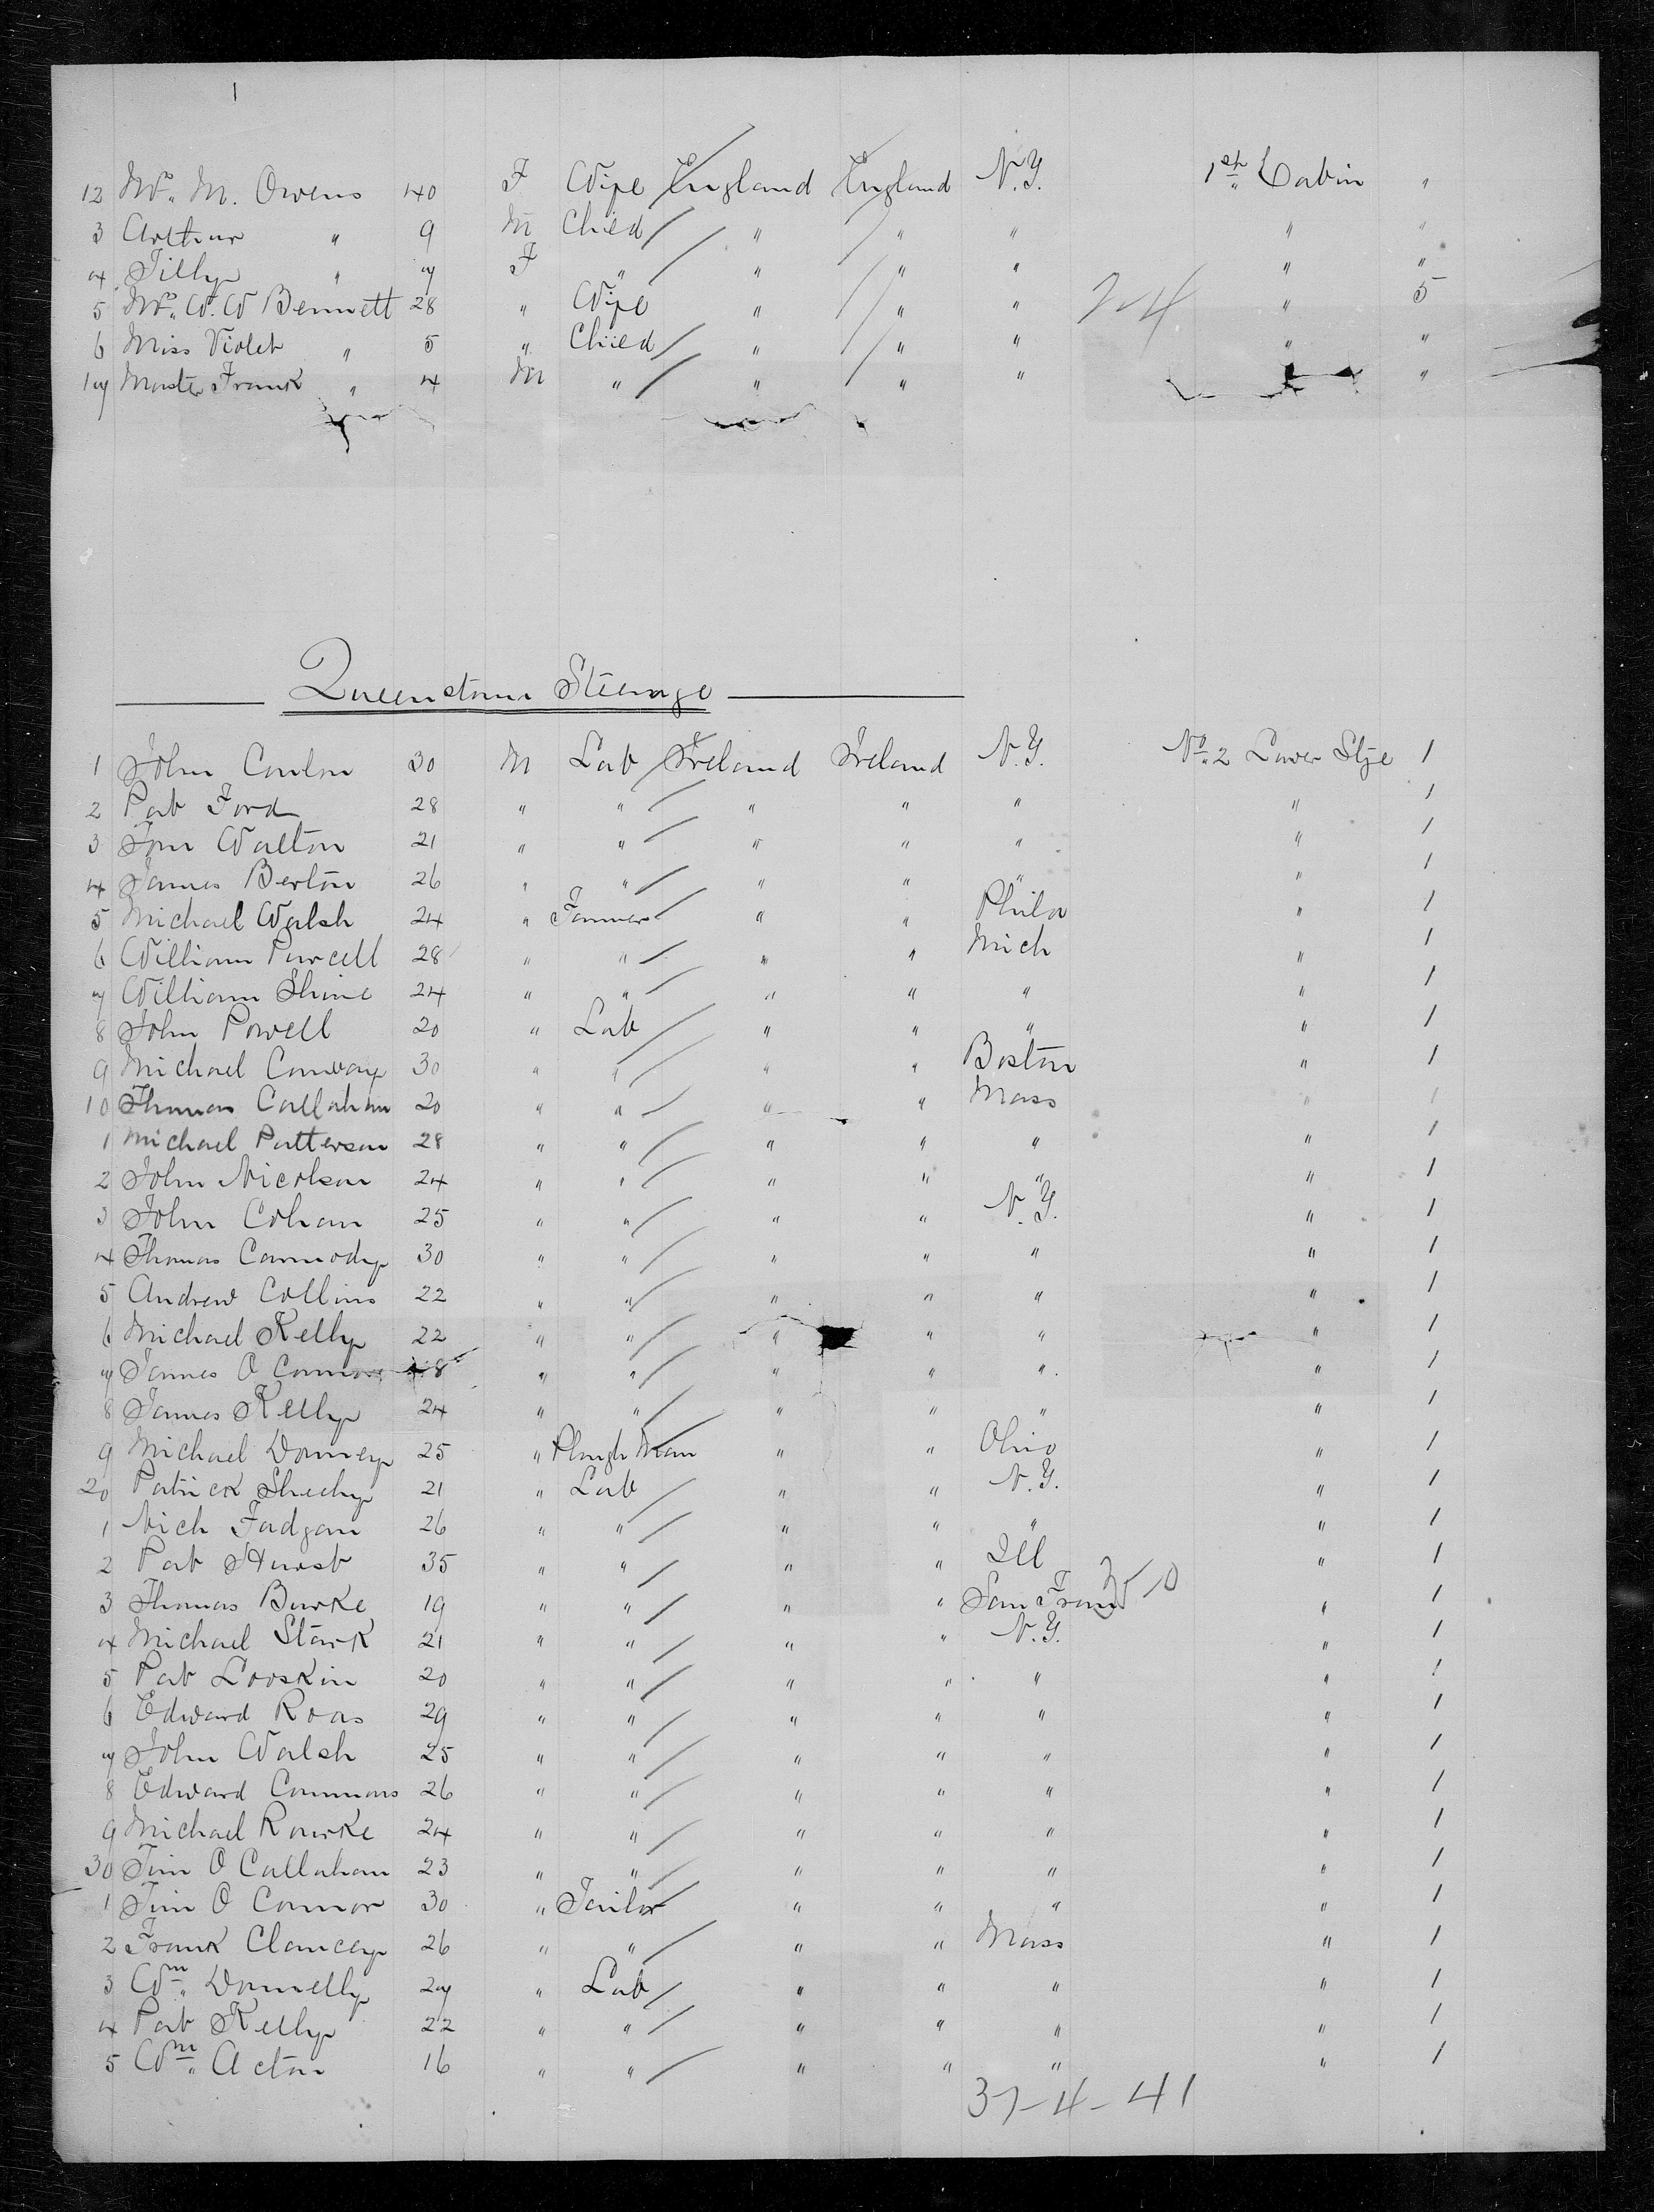 1
12 Mrs. M. Owens 40 F Wife England England N.Y. 1st Cabin "
3 Arthur " 9 M Child " " " " "
4 Tilly " 7 F " " " " " "
5 Mrs. W. W Bennett 28 " Wife " " " 2-4 " 5
6 Miss Violet " 5 " Child " " " " "
17 Master Frank " 4 M " " " " "
Queenstown Steerage
1 John Conlon 30 M Lab Ireland Ireland N.Y. No. 2 Lower Stge 1
2 Pat Ford 28 " " " " " " 1
3 Tom Walton 21 " " " " " " 1
4 James Berton 26 " " " " " " 1
5 Michael Walsh 24 " Farmer " " Phila " 1
6 William Purcell 28 " " " " Mich " 1
7 William Shine 24 " " " " " " 1
8 John Powell 20 " Lab " " " " 1
9 Michael Conway 30 " " " " Boston " 1
10 Thomas Callahan 20 " " " " Mass " 1
1 Michael Patterson 28 " " " " " " 1
2 John Nicolson 24 " " " " " " 1
3 John Cohan 25 " " " " N.Y. " 1
4 Thomas Carmody 30 " " " " " " 1
5 Andrew Collins 22 " " " " " " 1
6 Michael Kelly 22 " " " " " " 1
7 James O Connor 18 " " " " " " 1
8 James Kelly 24 " " " " " " 1
9 Michael Downey 25 " Plough Man " " Ohio " 1
20 Patrick Sheehy 21 " Lab " " N.Y. " 1
1 Nich Fadgan 26 " " " " " " 1
2 Pat Hurst 35 " " " " Ill " 1
3 Thomas Burke 19 " " " " San Fran " 1
4 Michael Stark 21 " " " " N.Y. " 1
5 Pat Looskin 20 " " " " " " 1
6 Edward Roas 29 " " " " " " 1
7 John Walsh 25 " " " " " " 1
8 Edward Commons 26 " " " " " " 1
9 Michael Rourke 24 " " " " " " 1
30 Tim O Callahan 23 " " " " " " 1
1 Tim O Connor 30 " Tailor " " " " 1
2 Frank Clancey 26 " " " " Mass " 1
3 Wm. Donnelly 27 " Lab " " " " 1
4 Pat Kelly 22 " " " " " " 1
5 Wm. Acton 16 " " " " " " 1
37-4-41